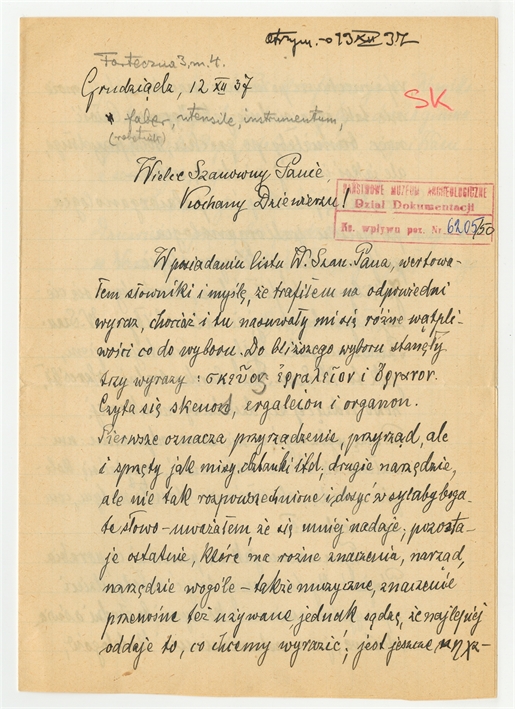 otrzym. 13 XII 37
Forteczna 3, m. 4.
Grudziądz, 12 XII 37
SK
faber, utensile, instrumentum,
Wielce Szanowny Panie,
Kochany Dzierwerze!
PAŃSTWOWE MUZEUM ARCHEOLOGICZNE
Dział Dokumentacji
Ks. wpływu poz. Nr. 6205/50
W posiadaniu listu W. Szan. Pana, wertowa-
łem słowniki i myślę, że trafiłem na odpowiedni
wyraz, chociaż i tu nasuwały mi się różne wątpli-
wości co do wyboru. Do bliższego wyboru stanęły
trzy wyrazy: σκεῦος ἐργαλεῖον i ὄργανον.
Czyta się skeuos, ergaleion i organon.
Pierwsze oznacza przyrządzenie, przyrząd, ale
i sprzęty jak misy, dzbanki itd, drugie narzędzie,
ale nie tak rozpowszechnione i dosyć w sylaby boga-
te słowo – uważałem, że się mniej nadaje, pozosta-
je ostatnie, które ma rożne znaczenia, narząd,
narzędzie wogóle – także muzyczne, znaczenie
przenośne też używane jednak sądzę, że najlepiej
oddaje to, co chcemy wyrazić; jest jeszcze μηχα-